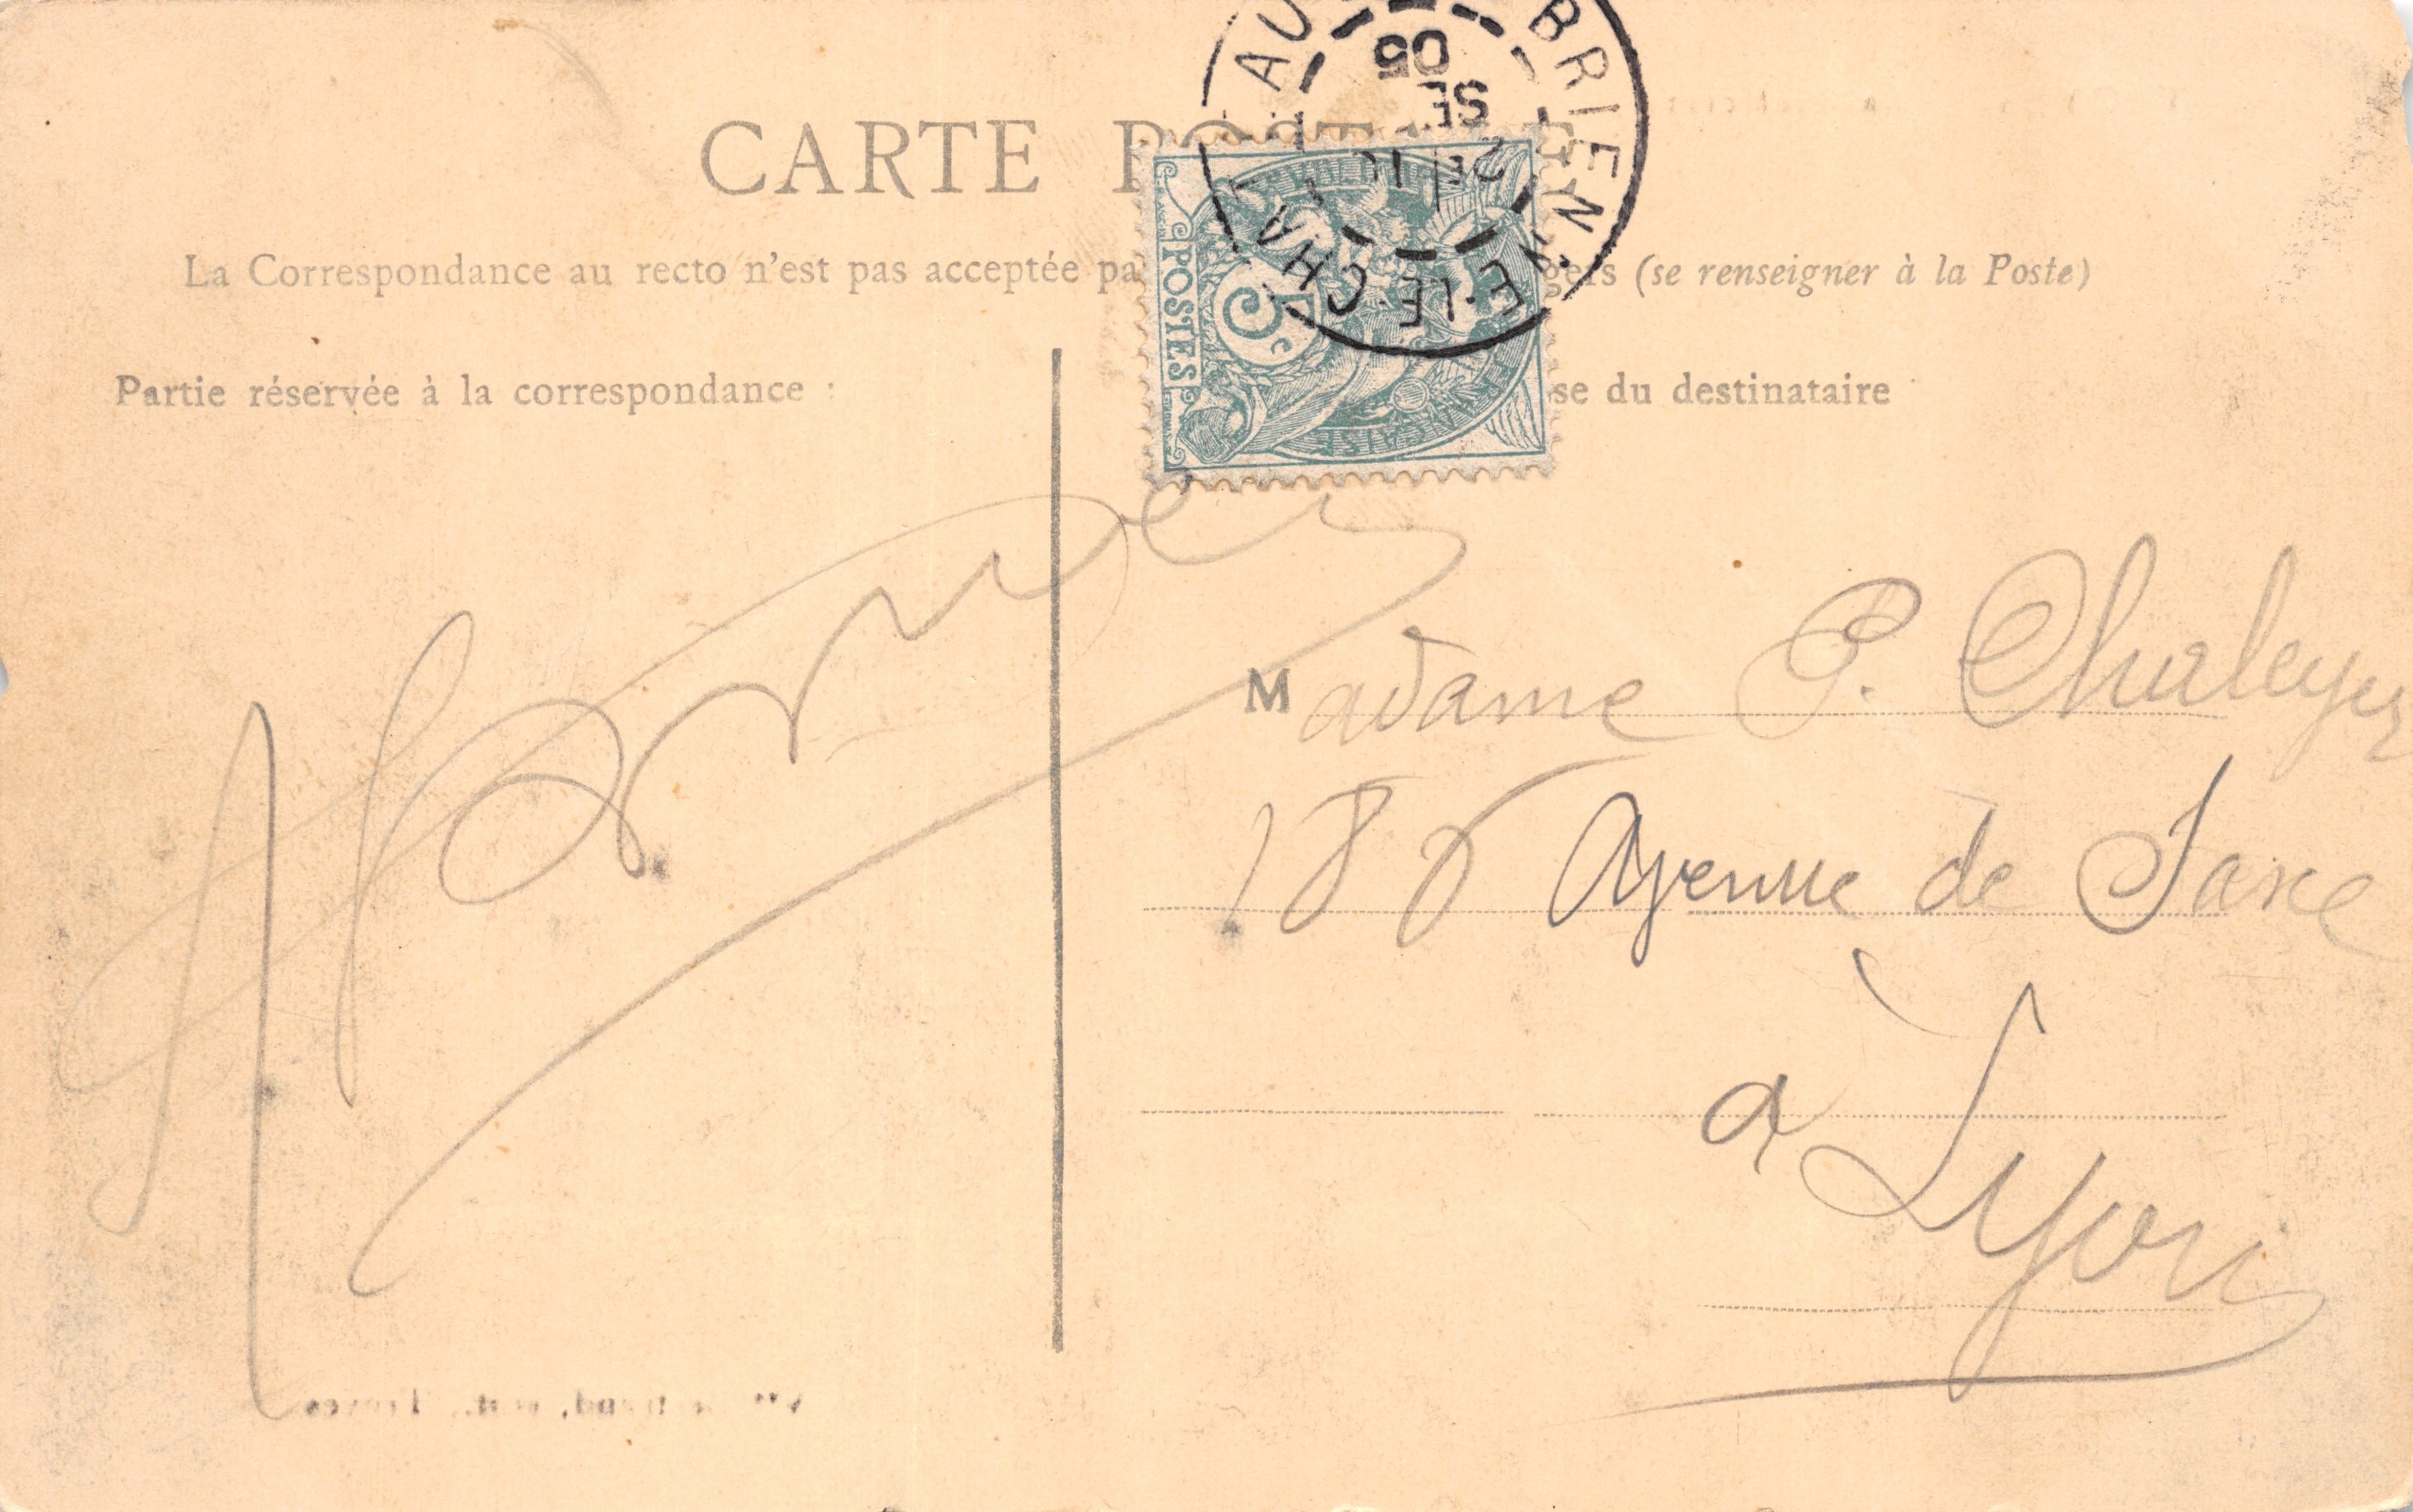 CARTE
La Correspondance au recto n'est pas acceptée pa gers (se renseigner à la Poste)
Partie réservée à la correspondance :
se du destinataire
AU BRIENNE-LE-CHA
SE
05
POSTES
5c
Madame P. Chaleyer
186 Avenue de Saxe
à Lyon